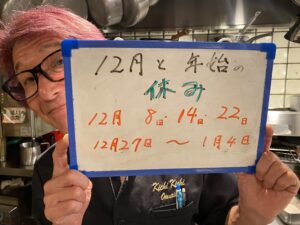 12月と年始の
休み
12月 8日・14日・22日
12月27日 〜 1月4日
Kichi Kichi
Omurice